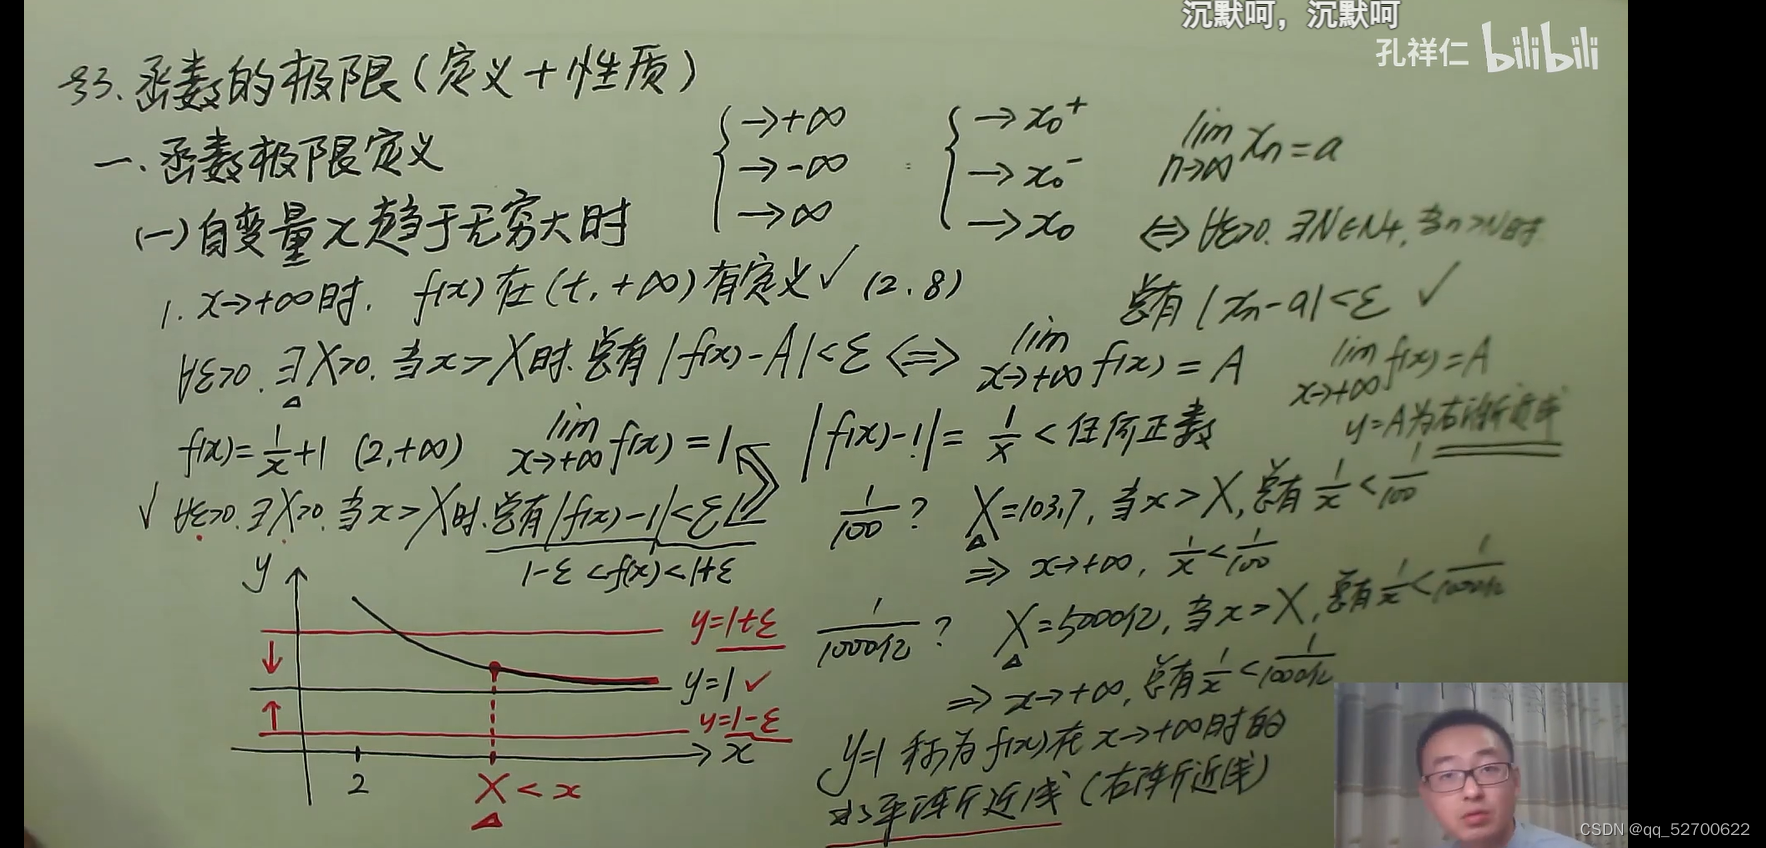 沉默呵，沉默呵
孔祥仁 bilibili
§3. 函数的极限（定义+性质）
一. 函数极限定义
(一) 自变量x趋于无穷大时
→+∞
→-∞
→∞
→x₀⁺
→x₀⁻
→x₀
lim xₙ=a
n→∞
⇔ ∀ε>0. ∃N∈N+, 当n>N时
总有 |xₙ-a|<ε ✓
1. x→+∞时, f(x)在(t,+∞)有定义✓ (2,8)
∀ε>0. ∃X>0. 当x>X时. 总有|f(x)-A|<ε ⇔ lim f(x)=A
x→+∞
lim f(x)=A
x→+∞
y=A为右渐近线
f(x)=1/x+1 (2,+∞) lim f(x)=1
x→+∞
|f(x)-1|=1/x<任何正数
✓ ∀ε>0. ∃X>0. 当x>X时. 总有|f(x)-1|<ε
1-ε<f(x)<1+ε
1/100? X=103.7, 当x>X, 总有1/x<1/100
⇒ x→+∞, 1/x<1/100
1/1000亿? X=5000亿, 当x>X, 总有1/x<1/1000亿
⇒ x→+∞, 总有1/x<1/1000亿
y=1 称为f(x)在x→+∞时的
水平渐近线（右渐近线）
y
y=1+ε
y=1 ✓
y=1-ε
x
2
X<x
CSDN @qq_52700622